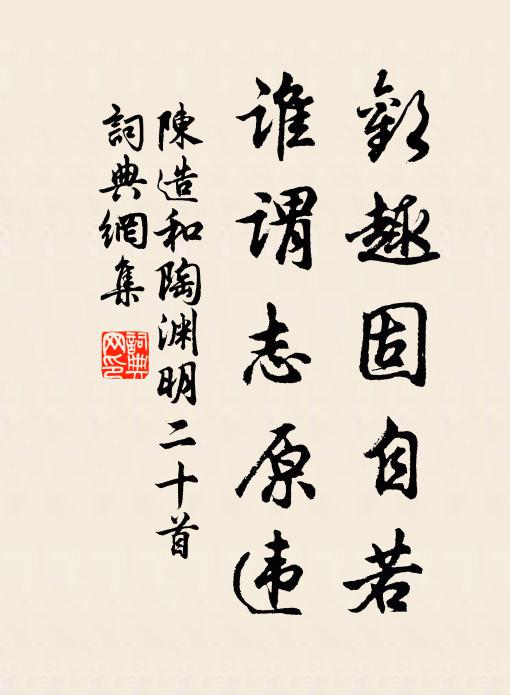 歡趣固自若
谁謂志原违
陳造和陶渊明二十首
詞典網集
詞典网印